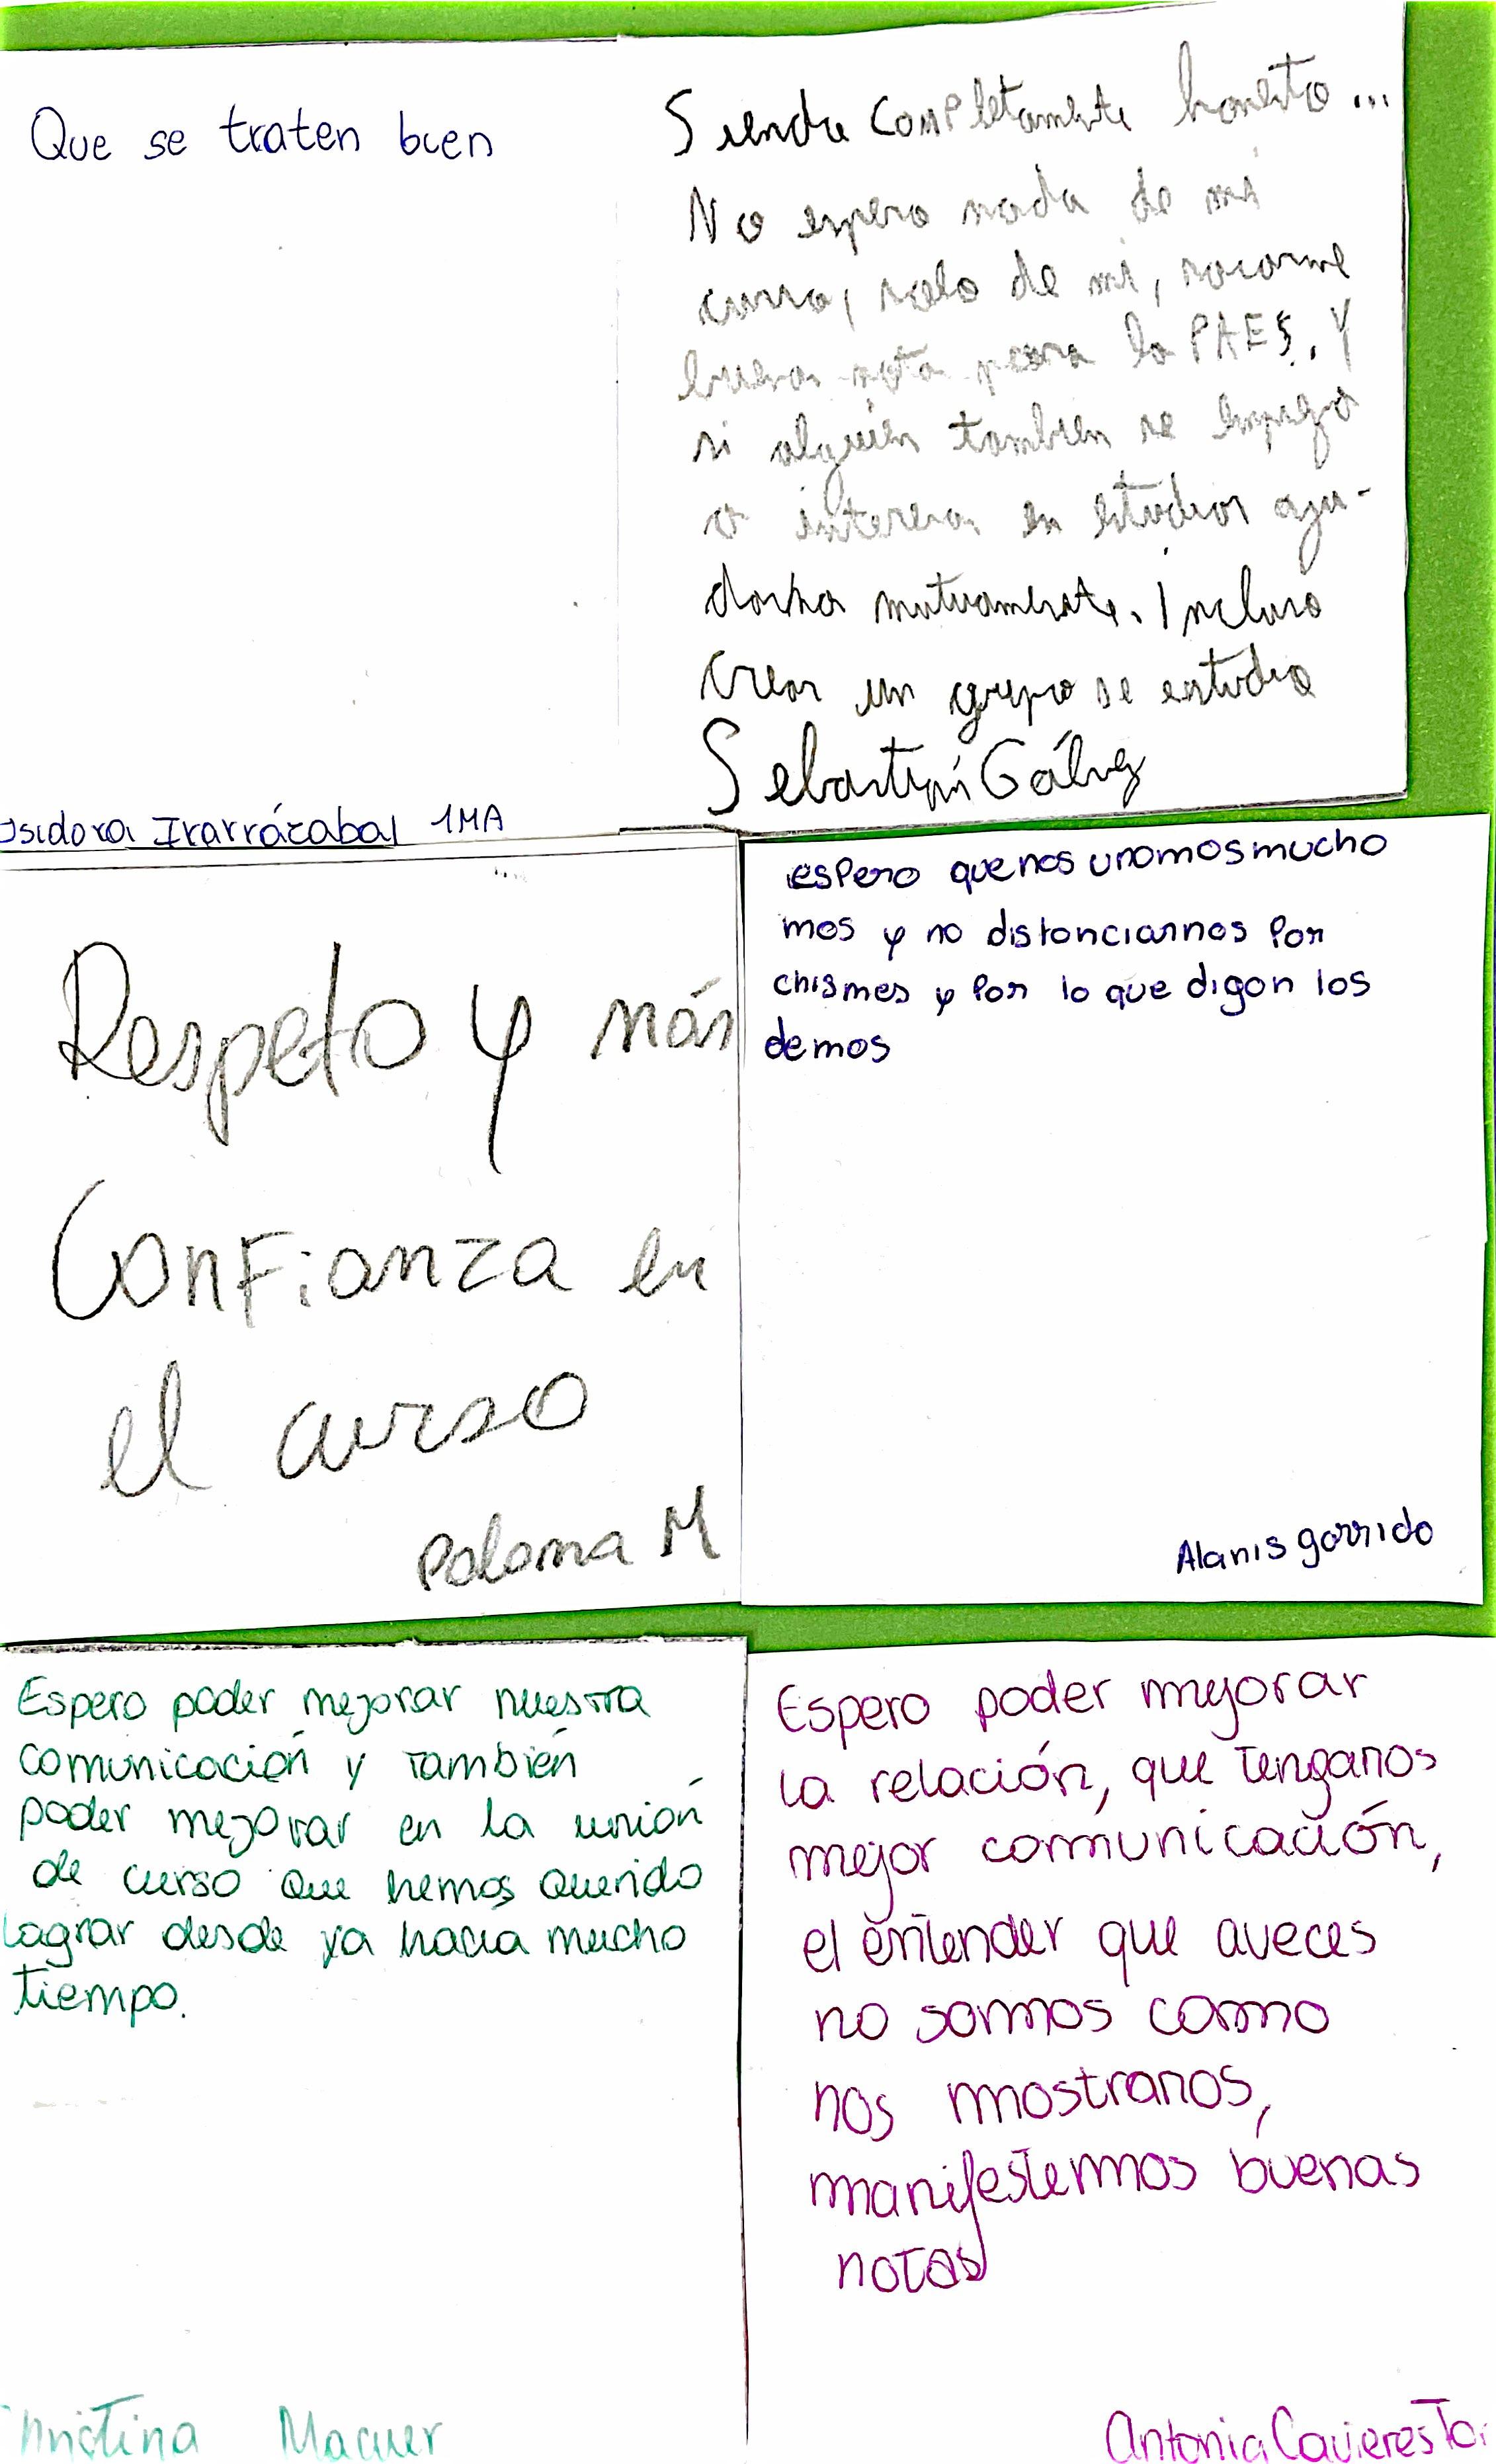 Que se traten bien
Isidora Irarrázabal 1MA
Siendo completamente honesto...
No espero nada de mi
curso, solo de mi, sacarme
buena nota para la PAES. Y
si alguien también se
o interesa en estudios ayu-
darnos mutuamente. Incluso
crear un grupo de estudio
Sebastián Gálvez
Respeto y más
Confianza en
el curso
Paloma M
espero que nos unamos mucho
mas y no distanciarnos por
chismes y por lo que digan los
demas
Alanis garrido
Espero poder mejorar nuestra
comunicación y también
poder mejorar en la unión
de curso que hemos querido
lograr desde ya hacia mucho
tiempo.
Espero poder mejorar
la relación, que tengamos
mejor comunicación,
el entender que aveces
no somos como
nos mostramos,
manifestemos buenas
notas
Antonia Cavieres